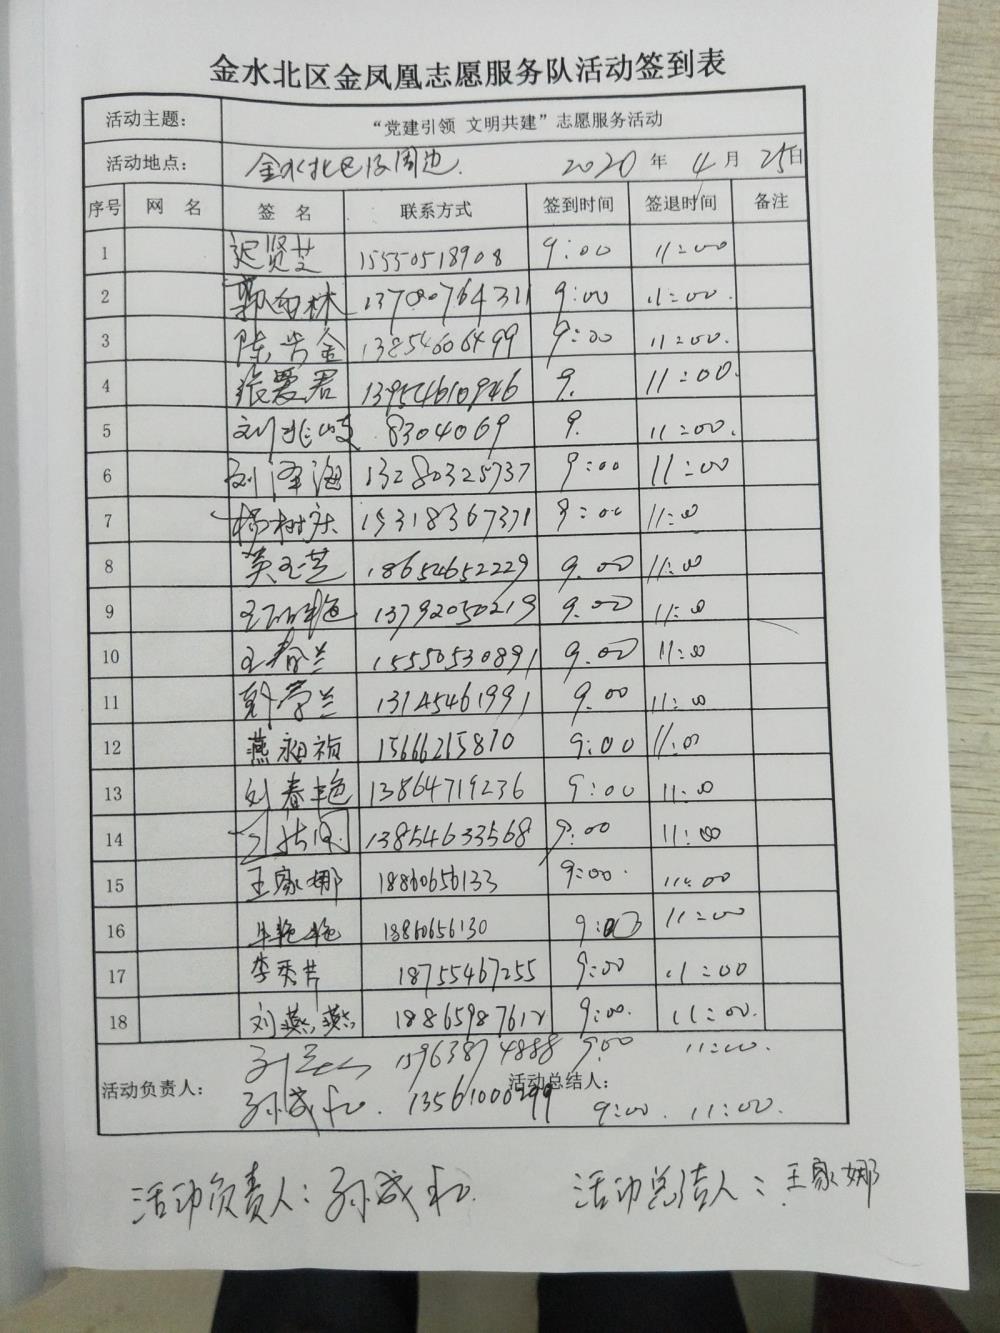 金水北区金凤凰志愿服务队活动签到表
活动主题： “党建引领 文明共建”志愿服务活动
活动地点： 金水北区及周边. 2020 年 4 月 25日
序号 网 名 签 名 联系方式 签到时间 签退时间 备注
1 迟贤芝 15550518908 9:00 11:00
2 13700764311 9:00 11:00.
3 13854606499 9:00 11:00.
4 张爱君 13954610946 9. 11:00.
5 刘兆岐 8304069 9. 11:00.
6 刘泽海 13280325737 9:00 11:00
7 杨树庆 15318367371 9:00 11:00
8 英玉芝 18654652229 9.00 11:00
9 13792050219 9.00 11:00
10 王春兰 15550530891 9.00 11:00
11 郭学兰 13145461991 9.00 11:00
12 燕昶禎 15666215870 9:00 11:00
13 刘春艳 13864719236 9:00 11:00
14 13854633568 9:00 11:00
15 王家娜 18860656133 9:00. 11:00
16 牛艳艳 18860656130 9:00 11:00
17 李秀芹 18755467255 9:00 11:00
18 刘燕燕 18865987612 9:00. 11:00.
15963874888 9:00 11:00.
活动负责人： 活动总结人：
孙成和. 13561000299 9:00. 11:00.
活动负责人：孙成和. 活动总结人：王家娜